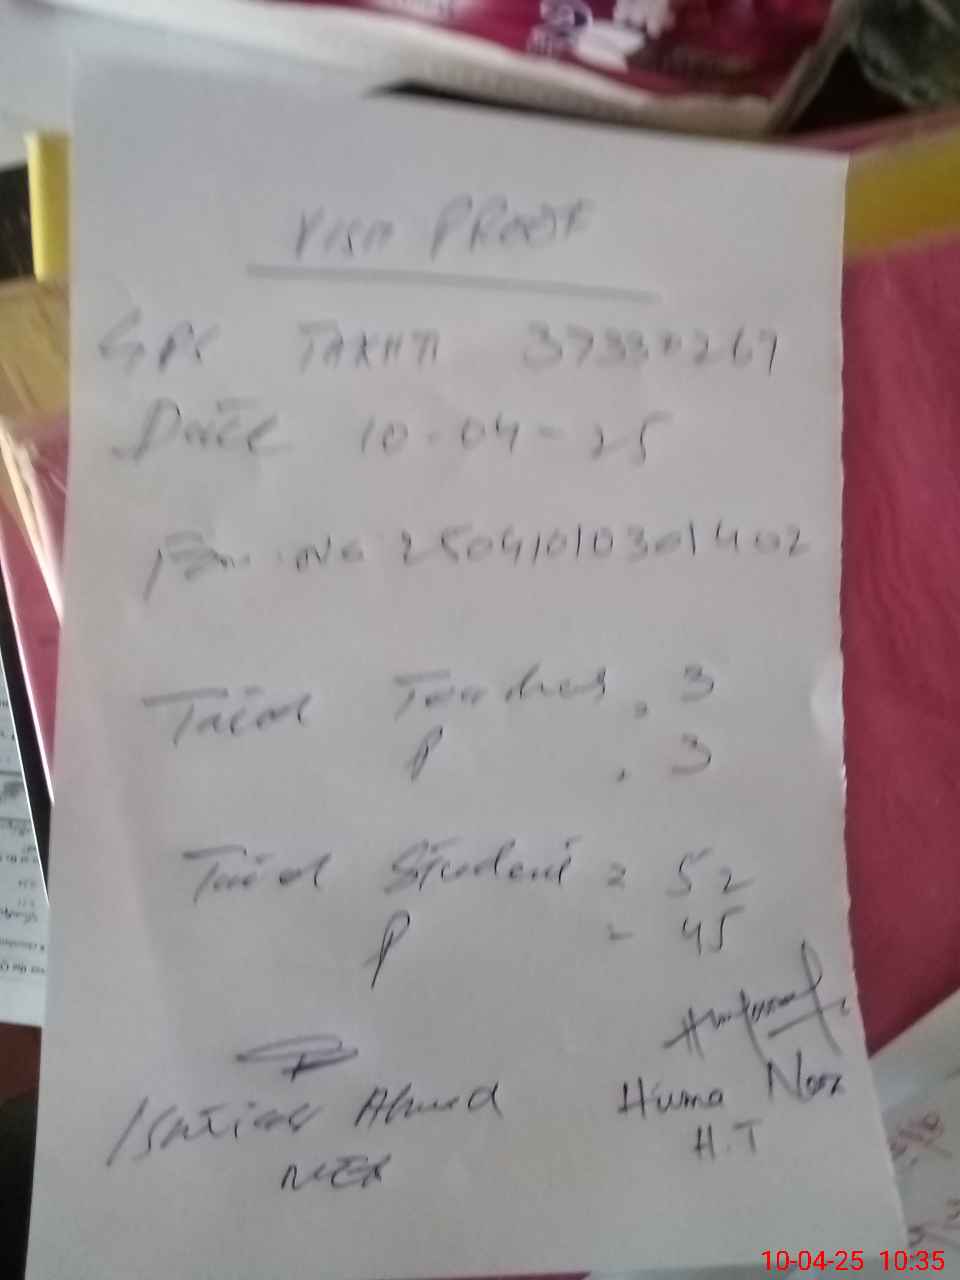 VISIT PROOF
GPS TAKHTI 37330267
Date 10-04-25
No 25041010301402
Total Teachers, 3
P , 3
Total Student = 52
P = 45
Ishtiaq Ahmed
Huma Noor
H.T
10-04-25 10:35